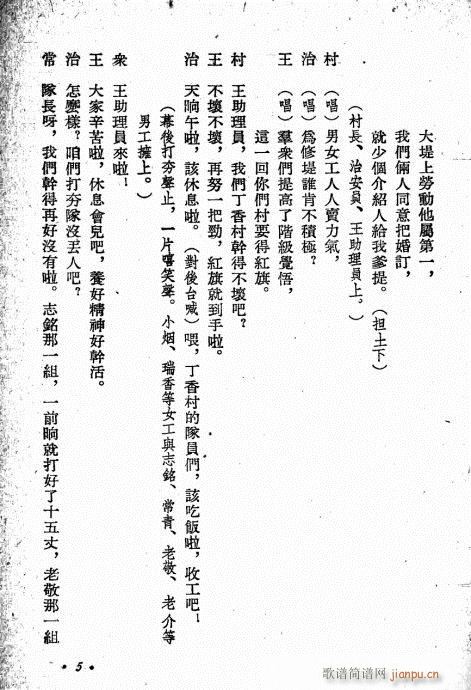 大堤上勞動他屬第一，
我們倆人同意把婚訂，
就少個介紹人給我爹提。（担土下）
（村長、治安員、王助理員上。）
村（唱）男女工人人賣力氣，
治（唱）爲修堤誰肯不積極？
王（唱）羣衆們提高了階級覺悟，
這一回你們村要得紅旗。
村　王助理員，我們丁香村幹得不壞吧？
王　不壞不壞，再努一把勁，紅旗就到手啦。
治　天晌午啦，該休息啦。（對後台喊）喂，丁香村的隊員們，該吃飯啦，收工吧！
（幕後打夯聲止，一片嘻笑聲。小烟、瑞香等女工與志銘、常青、老敬、老介等
男工擁上。）
衆　王助理員來啦！
王　大家辛苦啦，休息會兒吧，養好精神好幹活。
治　怎麽樣？咱們打夯隊沒丟人吧？
常　隊長呀，我們幹得再好沒有啦。志銘那一組，一前晌就打好了十五丈，老敬那一組
• 5 •
歌谱简谱网
jianpu.cn